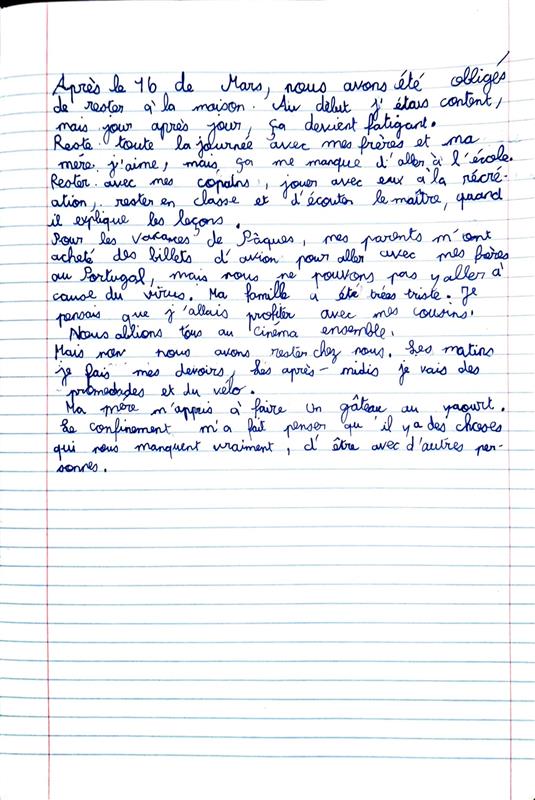 Après le 16 de Mars, nous avons été obligés
de rester à la maison. Au début j'étais content,
mais jour après jour, ça devient fatigant.
Reste toute la journée avec mes frères et ma
mère j'aime, mais, ça me manque d'aller à l'école.
Rester avec mes copains, jouer avec eux à la récré-
ation, rester en classe et d'écouter le maître, quand
il explique les leçons.
Pour les vacances de Pâques, mes parents m'ont
acheté des billets d'avion pour aller avec mes frères
au Portugal, mais nous ne pouvons pas y aller à
cause du virus. Ma famille a été trées triste. Je
pensais que j'allais profiter avec mes cousins.
Nous allions tous au cinéma ensemble.
Mais non nous avons rester chez nous. Les matins
je fais mes devoirs, les après-midis je vais des
promedades et du vélo.
Ma mère m'appris à faire un gâteau au yaourt.
Le confinement m'a fait penser qu'il y a des choses
qui nous manquent vraiment, d'être avec d'autres per-
sonnes.